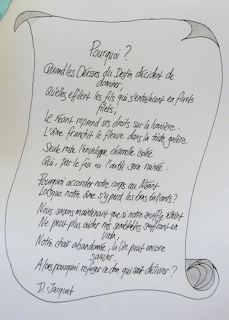 Pourquoi ?
Quand les Déesses du Destin décident de
dominer,
Qu'elles effilent les fils qui s'entrelacent en fluets
filets,
Le Néant reprend ses droits sur la lumière.
L'âme franchit le fleuve dans la triste galère
Seule reste l'enveloppe charnelle isolée
Qui, par le feu ou l'oubli sera ruinée.
Pourquoi accorder notre corps au Néant
Lorsque notre âme s'y perd les bras ballants ?
Nous savons maintenant que si notre souffle éteint
Ne peut plus aider nos semblables souffrant en
vain,
Notre chair abandonnée, la Vie peut encore
sauver.
Alors pourquoi refuser ce don qui sait délivrer ?
D. Jacquet